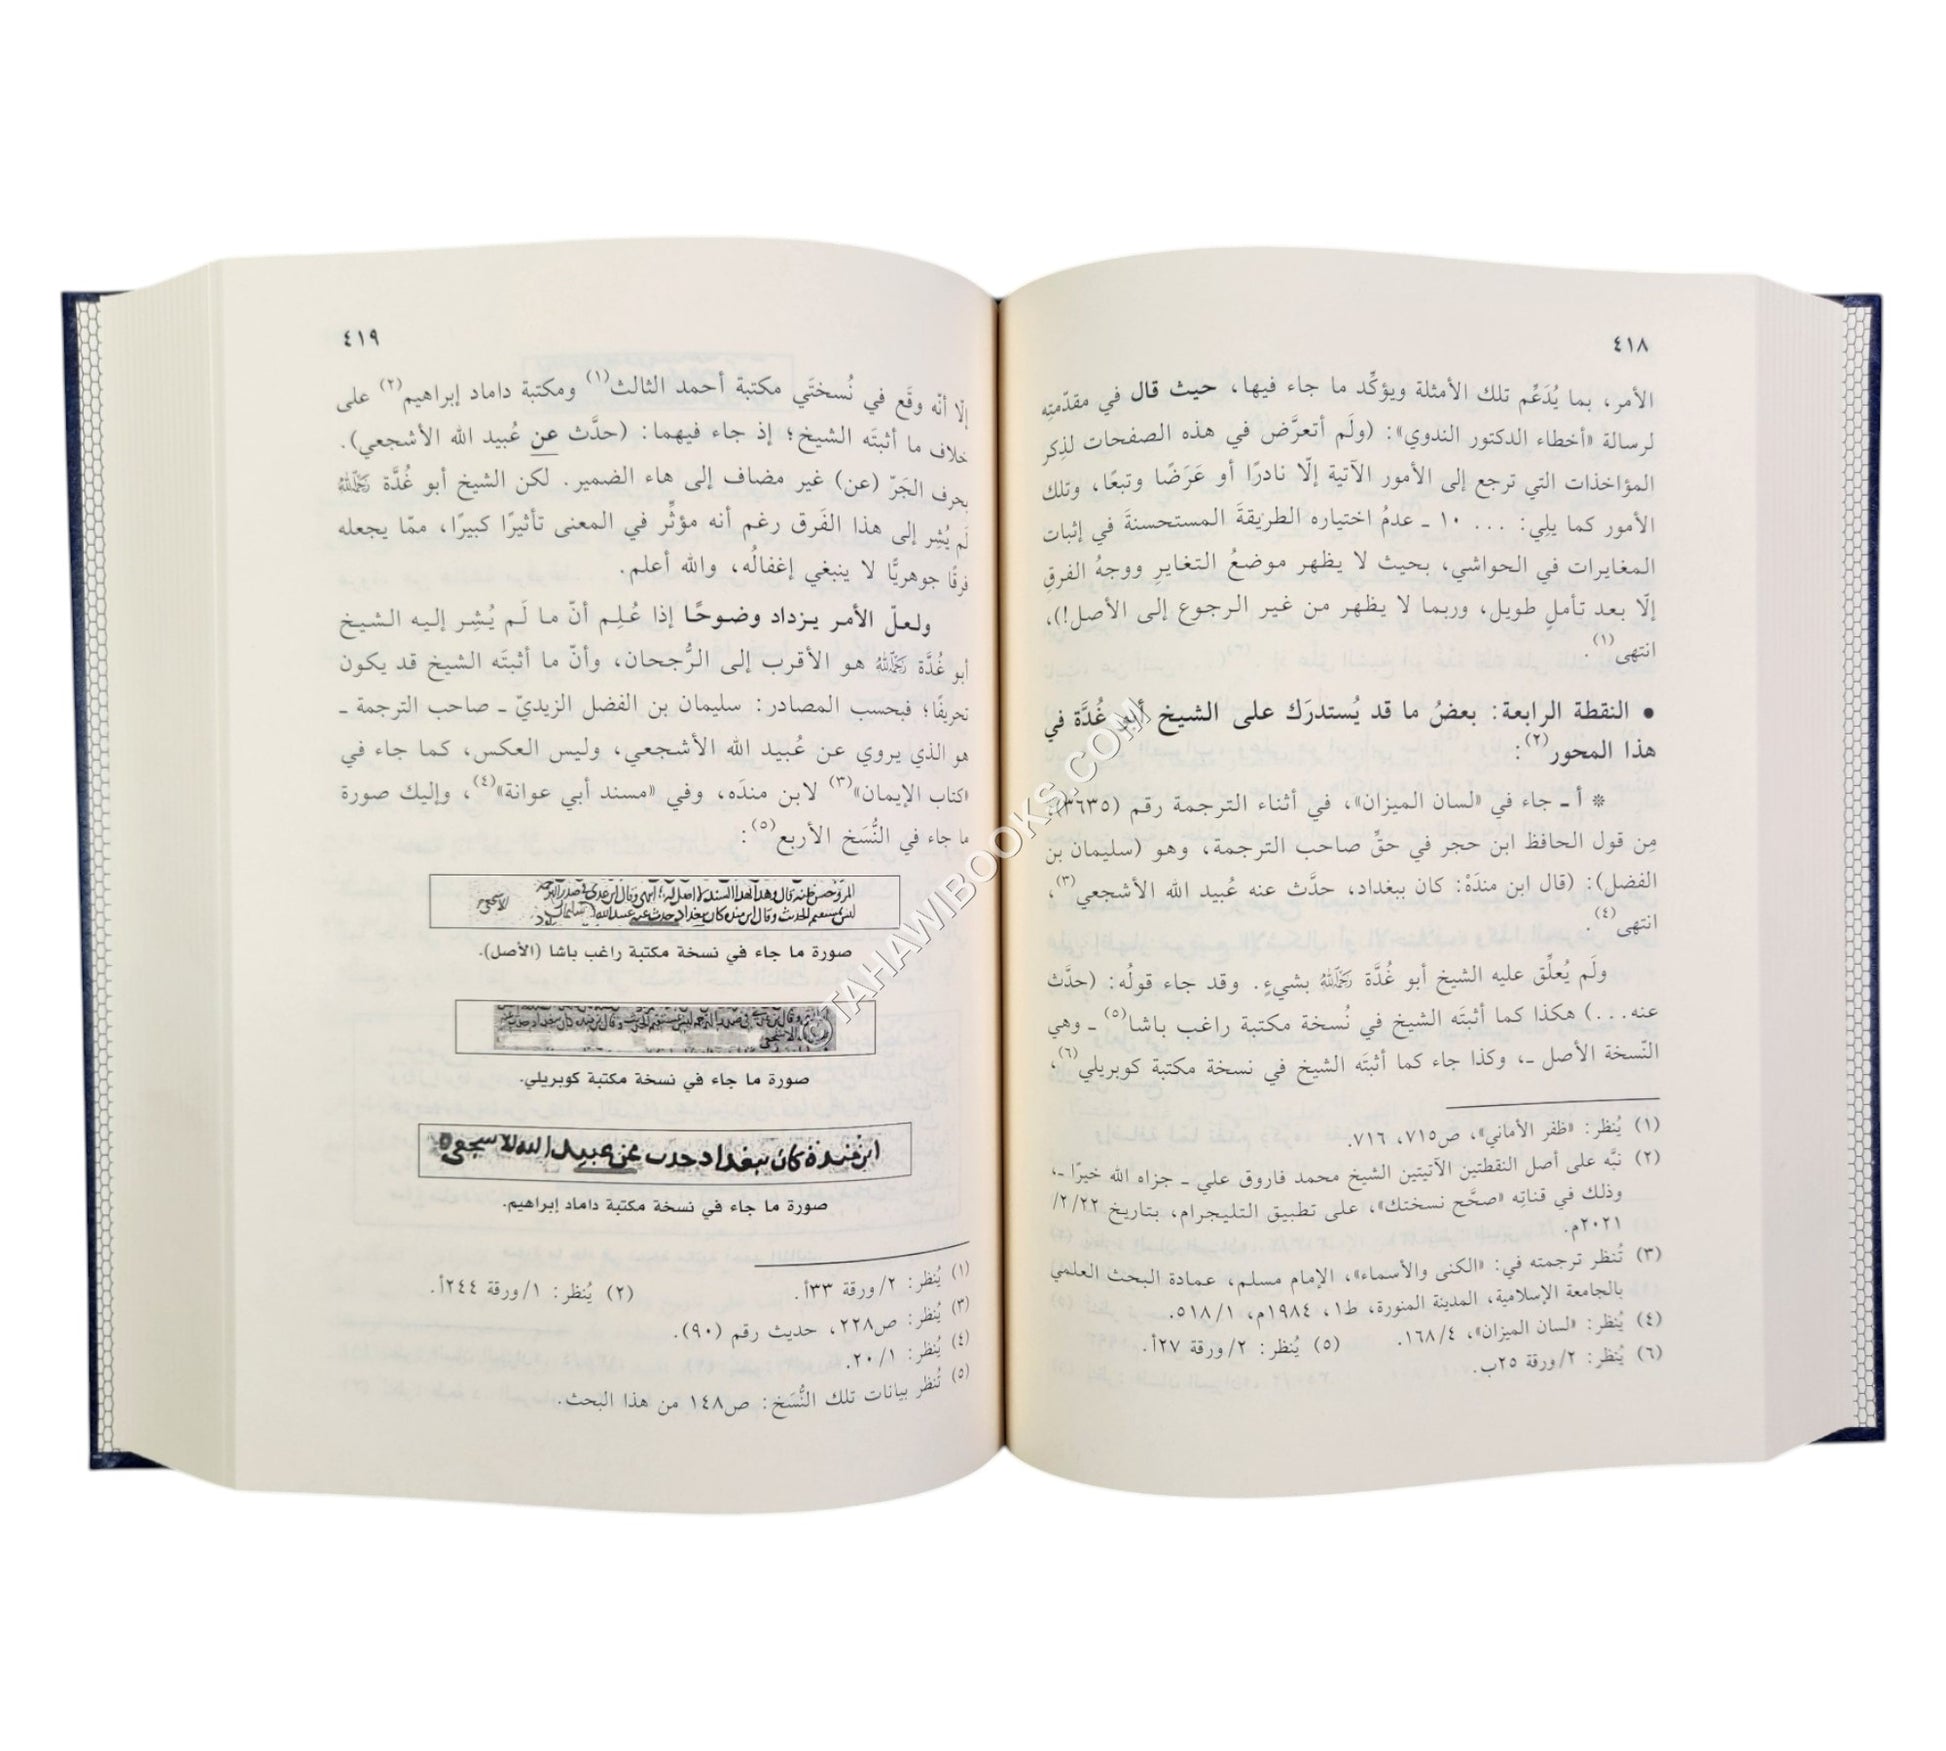 ٤١٨
الأمر، بما يُدَعِّم تلك الأمثلة ويؤكِّد ما جاء فيها، حيث قال في مقدّمتِه
لرسالة «أخطاء الدكتور الندوي»: (ولَم أتعرَّض في هذه الصفحات لذِكر
المؤاخذات التي ترجع إلى الأمور الآتية إلّا نادرًا أو عَرَضًا وتبعًا، وتلك
الأمور كما يلِي: ... ١٠ ـ عدمُ اختياره الطريقةَ المستحسنةَ في إثبات
المغايرات في الحواشي، بحيث لا يظهر موضعُ التغايرِ ووجهُ الفرقِ
إلّا بعد تأملٍ طويل، وربما لا يظهر من غير الرجوع إلى الأصل!)،
انتهى(١).
• النقطة الرابعة: بعضُ ما قد يُستدرَك على الشيخ أبو غُدَّة في
هذا المحور(٢):
* أ ـ جاء في «لسان الميزان»، في أثناء الترجمة رقم (٣٦٣٥)،
مِن قول الحافظ ابن حجر في حقِّ صاحب الترجمة، وهو (سليمان بن
الفضل): (قال ابن مندَهْ: كان ببغداد، حدَّث عنه عُبيد الله الأشجعي(٣)،
انتهى(٤).
ولَم يُعلِّق عليه الشيخ أبو غُدَّة رَحِمَهُ اللهُ بشيءٍ. وقد جاء قولُه: (حدَّث
عنه...) هكذا كما أثبتَه الشيخ في نُسخة مكتبة راغب باشا(٥) ـ وهي
النّسخة الأصل ـ، وكذا جاء كما أثبتَه الشيخ في نسخة مكتبة كوبريلي(٦)،
(١) يُنظر: «ظفر الأماني»، ص٧١٥، ٧١٦.
(٢) نبَّه على أصل النقطتين الآتيتين الشيخ محمد فاروق علي ـ جزاه الله خيرًا ـ،
وذلك في قناتِه «صحَّح نسختك»، على تطبيق التليجرام، بتاريخ ٢/٢٢/
٢٠٢١م.
(٣) تُنظر ترجمته في: «الكنى والأسماء»، الإمام مسلم، عمادة البحث العلمي
بالجامعة الإسلامية، المدينة المنورة، ط١، ١٩٨٤م، ٥١٨/١.
(٤) يُنظر: «لسان الميزان»، ١٦٨/٤. (٥) يُنظر: ٢/ورقة ٢٧أ.
(٦) يُنظر: ٢/ورقة ٢٥ب.
٤١٩
إلّا أنّه وقَع في نُسختَي مكتبة أحمد الثالث(١) ومكتبة داماد إبراهيم(٢) على
خلاف ما أثبتَه الشيخ؛ إذ جاء فيهما: (حدَّث عن عُبيد الله الأشجعي).
بحرف الجَرّ (عن) غير مضاف إلى هاء الضمير. لكن الشيخ أبو غُدَّة رَحِمَهُ اللهُ
لَم يُشِر إلى هذا الفَرق رغم أنه مؤثِّر في المعنى تأثيرًا كبيرًا، ممّا يجعله
فرقًا جوهريًّا لا ينبغي إغفالُه، والله أعلم.
ولعلّ الأمر يزداد وضوحًا إذا عُلِم أنّ ما لَم يُشِر إليه الشيخ
أبو غُدَّة رَحِمَهُ اللهُ هو الأقرب إلى الرُّجحان، وأنّ ما أثبتَه الشيخ قد يكون
تحريفًا؛ فبحسب المصادر: سليمان بن الفضل الزيديّ ـ صاحب الترجمة ـ
هو الذي يروي عن عُبيد الله الأشجعي، وليس العكس، كما جاء في
«كتاب الإيمان»(٣) لابن مندَه، وفي «مسند أبي عوانة»(٤)، وإليك صورة
ما جاء في النُّسَخ الأربع(٥):
صورة ما جاء في نسخة مكتبة راغب باشا (الأصل).
صورة ما جاء في نسخة مكتبة كوبريلي.
ابن منده كان ببغداد حدث عن عبيد الله الاشجعي
صورة ما جاء في نسخة مكتبة داماد إبراهيم.
(١) يُنظر: ٢/ورقة ٣٣أ. (٢) يُنظر: ١/ورقة ٢٤٤أ.
(٣) يُنظر: ص٢٢٨، حديث رقم (٩٠).
(٤) يُنظر: ٢٠/١.
(٥) تُنظر بيانات تلك النُّسَخ: ص١٤٨ من هذا البحث.
©TAHAWIBOOKS.COM